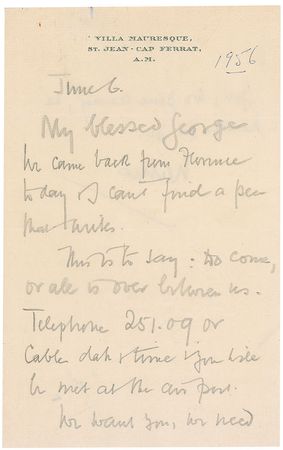 VILLA MAURESQUE,
ST. JEAN - CAP FERRAT,
A.M.
1956
June 6.
My blessed George
We came back from Florence
today & I can't find a pen
that writes.
This is to say: do come,
or all is over between us.
Telephone 251.09 or
Cable date & time & you will
be met at the air port.
We want you, we need